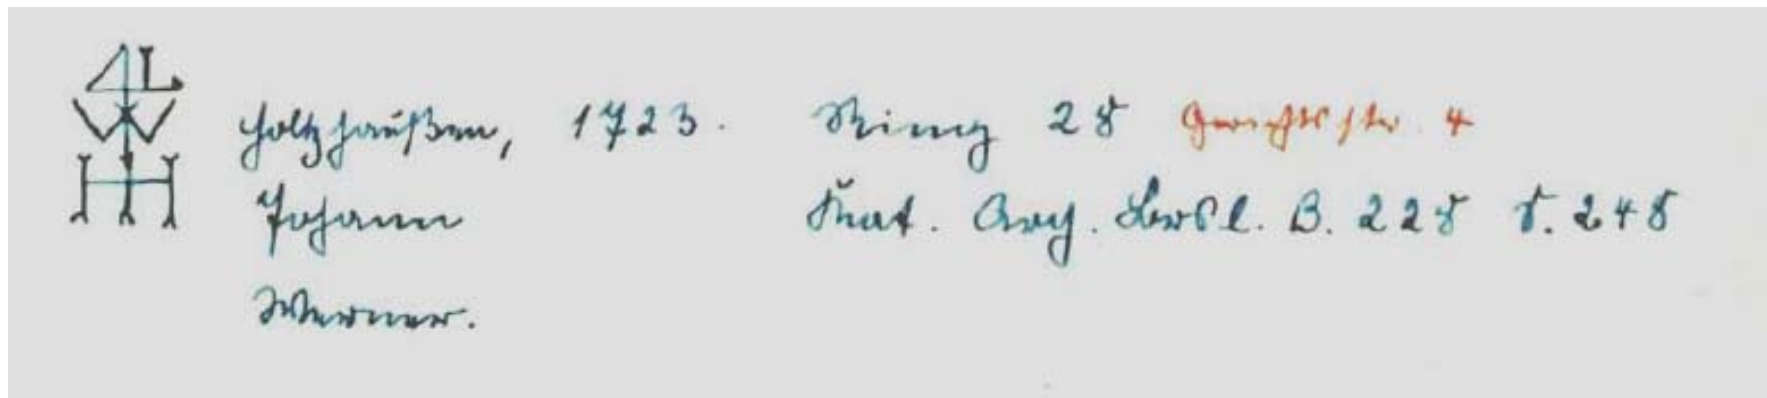 Holtzhaußen, 1723. Ring 28 Gerichtsstr. 4
Johann Stat. Arch. Bresl. B. 228 S. 248
Werner.